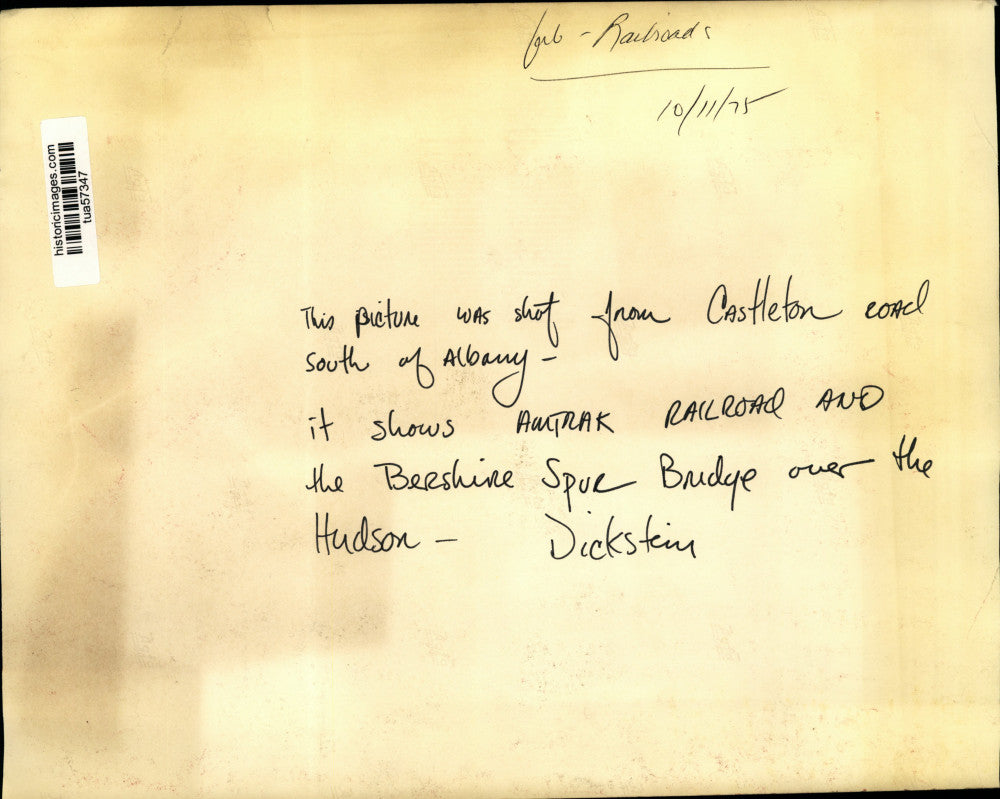 - Railroads
10/11/75
historicimages.com
tua57347
This picture was shot from Castleton road
south of Albany -
it shows AMTRAK RAILROAD AND
the Bershire Spur Bridge over the
Hudson - Dickstein